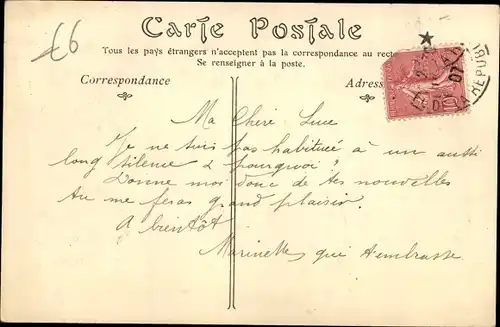 £6
Carte Postale
Tous les pays étrangers n'acceptent pas la correspondance au recto
Se renseigner à la poste.
Correspondance
Adress
Ma Chère Luce
Je ne suis pas habituée à un aussi
long silence & pourquoi ?
Donne moi donc de tes nouvelles
tu me feras grand plaisir
A bientôt
Marinette qui t'embrasse
10
07